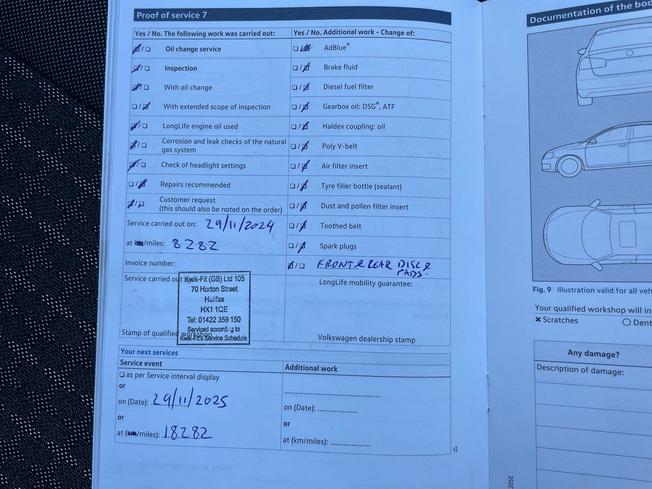 Proof of service 7
Yes / No. The following work was carried out:
Oil change service
Inspection
With oil change
With extended scope of inspection
LongLife engine oil used
Corrosion and leak checks of the natural
gas system
Check of headlight settings
Repairs recommended
Customer request
(this should also be noted on the order)
Service carried out on: 29/11/2024
at km/miles: 8282
Invoice number:
Service carried out
Kwik-Fit (GB) Ltd 105
70 Horton Street
Halifax
HX1 1QE
Tel: 01422 359 150
Serviced according to
Kwik-Fit's Service Schedule
Stamp of qualified
Yes / No. Additional work - Change of:
AdBlue®
Brake fluid
Diesel fuel filter
Gearbox oil: DSG®, ATF
Haldex coupling: oil
Poly V-belt
Air filter insert
Tyre filler bottle (sealant)
Dust and pollen filter insert
Toothed belt
Spark plugs
FRONT & REAR DISC &
PADS.
LongLife mobility guarantee:
Volkswagen dealership stamp
Your next services
Service event
as per Service interval display
or
on (Date): 29/11/2025
or
at (km/miles): 18282
Additional work
on (Date):
or
at (km/miles):
Documentation of the bod
Fig. 9 Illustration valid for all veh
Your qualified workshop will in
× Scratches
Dent
Any damage?
Description of damage: